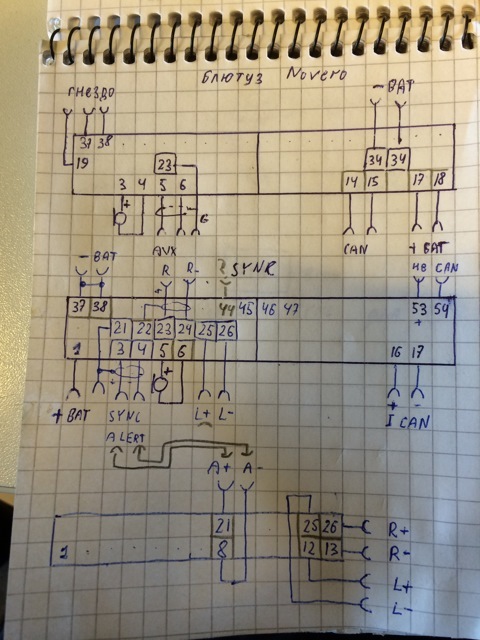 блютуз Novero
гнездо
- BAT
37 38
19
23
34 34
3 4 5 6
14 15 17 18
AVX
CAN
+ BAT
- BAT
R R-
SYNC
HB CAN
37 38
44 45 46 47
53 54
21 22 23 24 25 26
1
3 4 5 6
16 17
+ BAT
SYNC
ALERT
L+ L-
+ -
I CAN
A+ A-
21
25 26
R+
1
8
12 13
R-
L+
L-